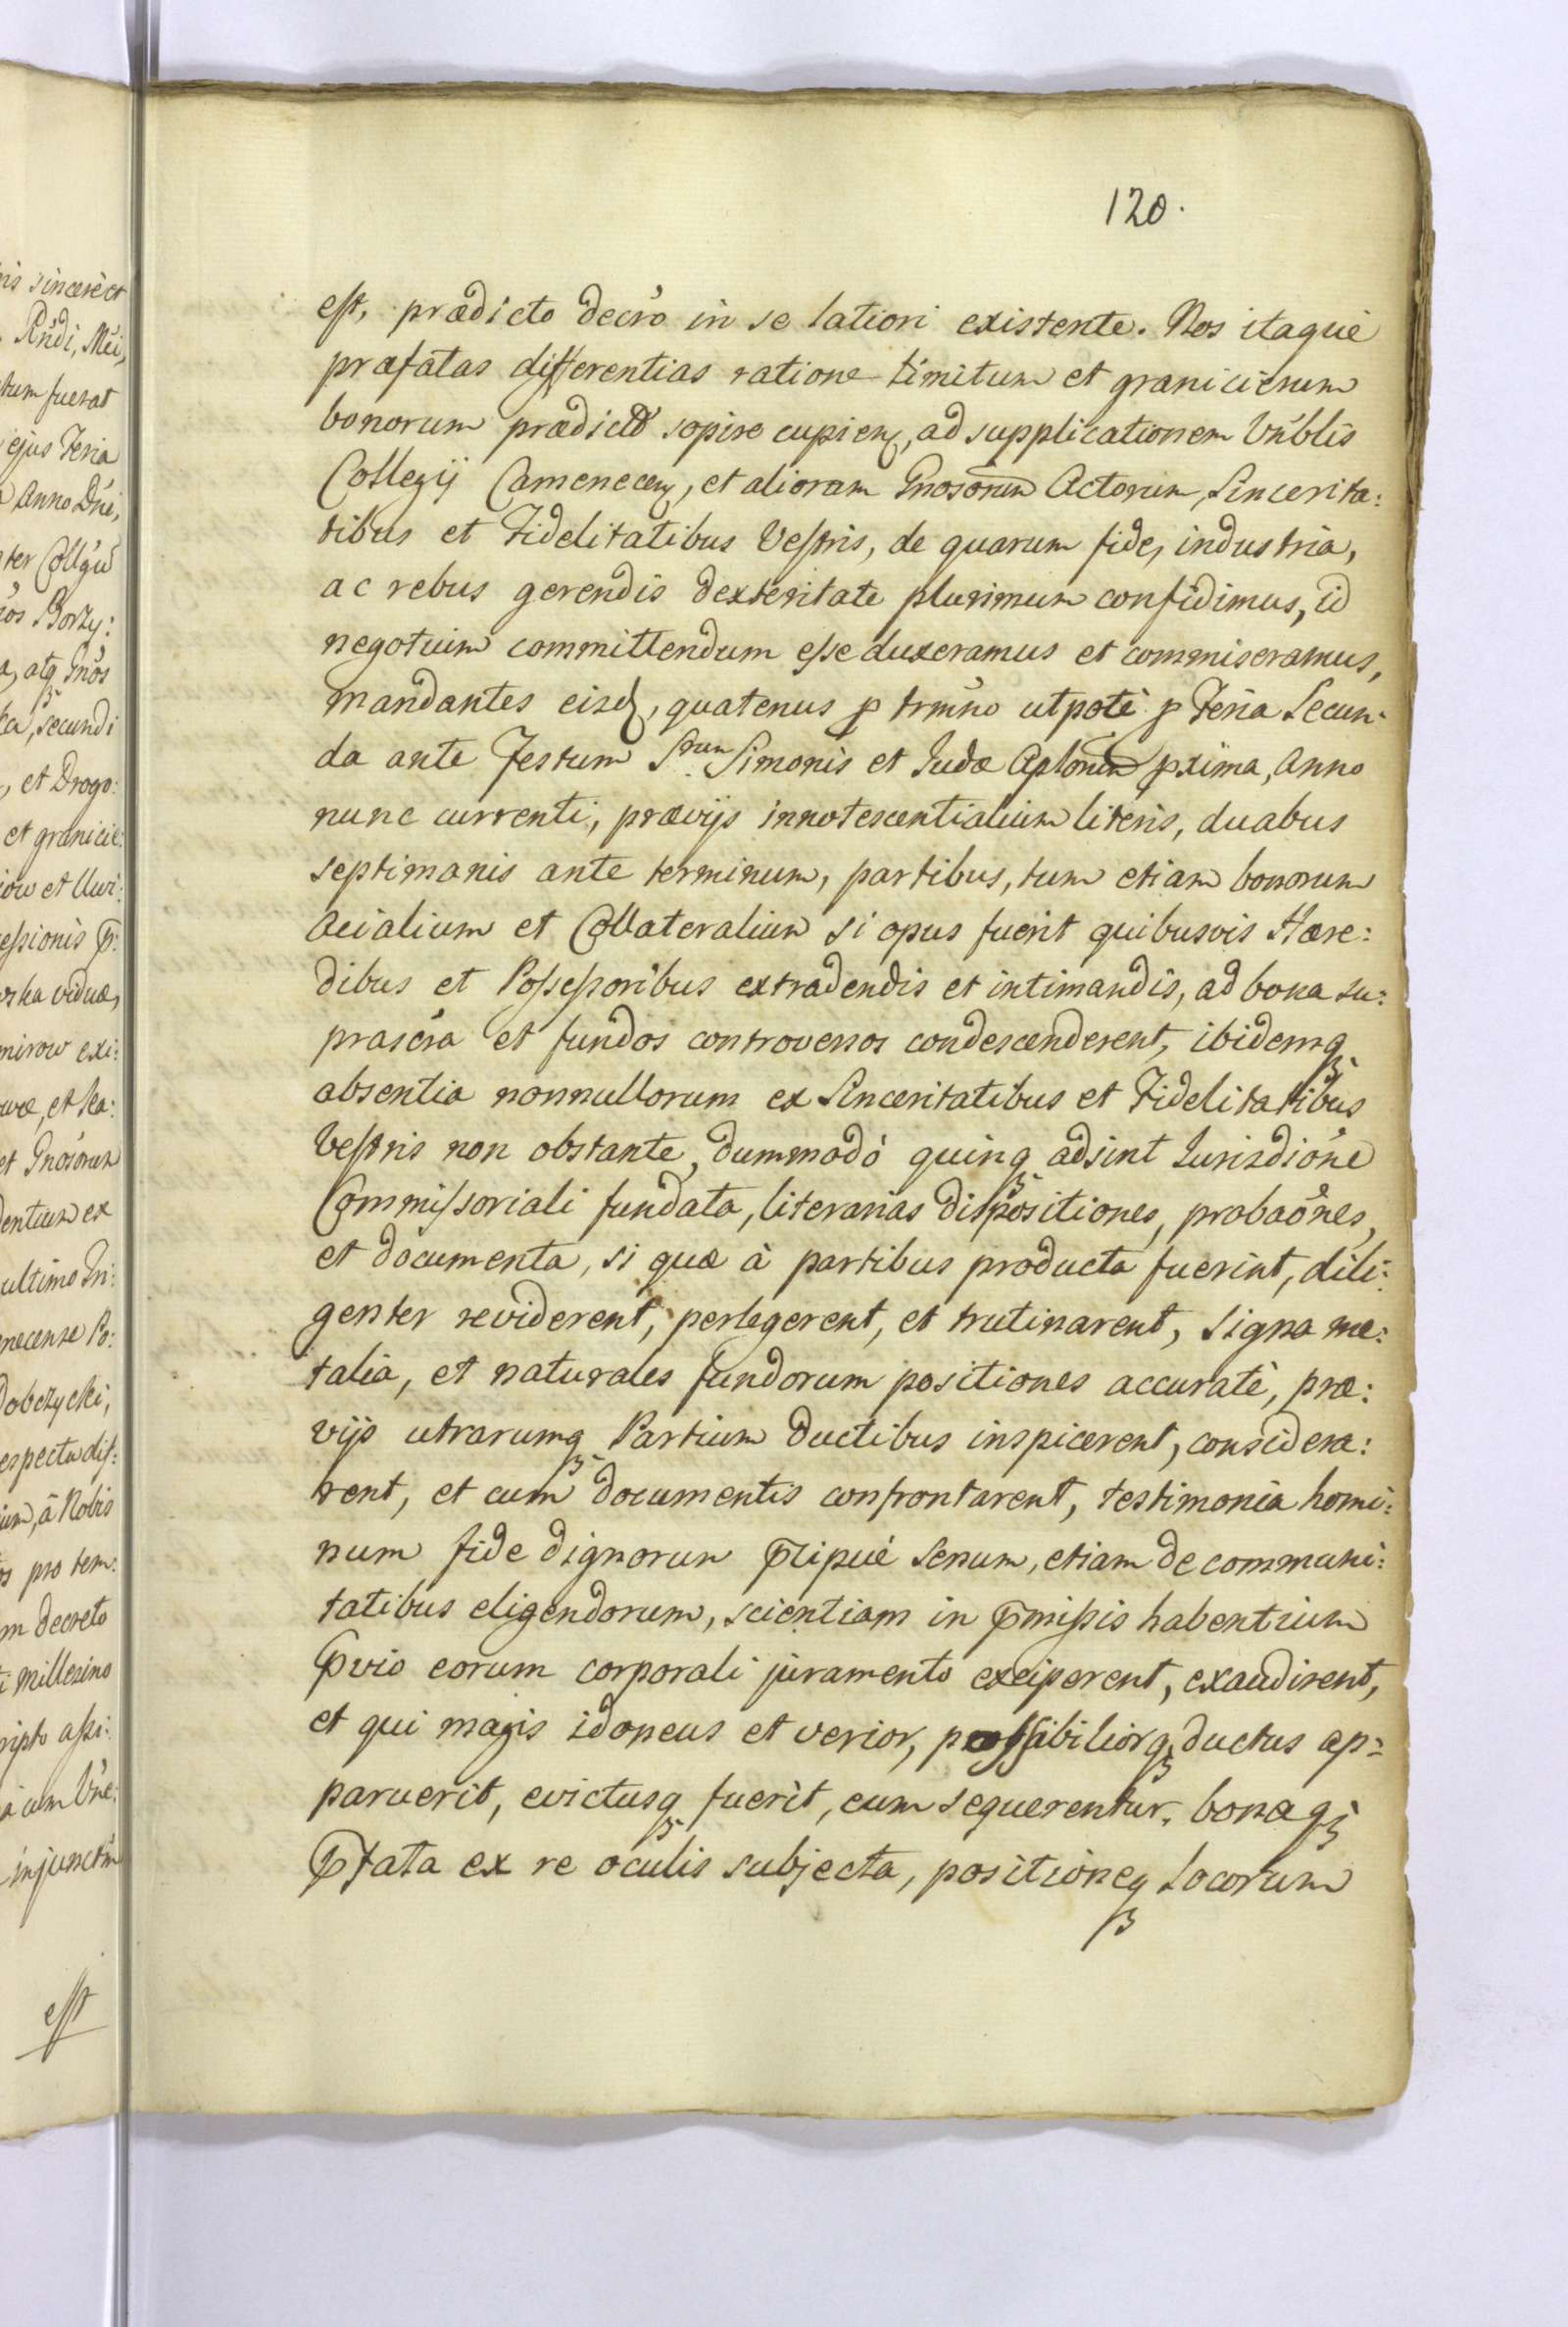 120.
est, prædicto decro in se latiori existente. Nos itaque
præfatas differentias ratione limitum et granicierum
bonorum prædictor sopire cupien, ad supplicationem Vnblis
Collegij Camenecen, et aliorum Gnosorum Actorum, Sincerita:
tibus et Fidelitatibus Vestris, de quarum fide, industria,
ac rebus gerendis dexteritate plurimum confidimus, id
negotium committendum esse duxeramus et commiseramus,
mandantes eisd, quatenus p trmino utpote p Feria Secun-
da ante Festum S.rum Simonis et Judæ Aplorum pxima, Anno
nunc currenti, prævijs innotescentialium literis, duabus
septimanis ante terminum, partibus, tum etiam bonorum
Acialium et Collateralium si opus fuerit quibusvis Hære:
dibus et Possessoribus extradendis et intimandis, ad bona su:
prascra et fundos controversos condescenderent, ibidemq
absentia nonnullorum ex Sinceritatibus et Fidelitatibus
Vestris non obstante, dummodò quinq adsint Jurisdione
Commissoriali fundata, literarias dispositiones, probaones,
et documenta, si quæ à partibus producta fuerint, dili:
genter reviderent, perlegerent, et trutinarent, signa me:
talia, et naturales fundorum positiones accuratè, præ:
vijs utrarumq Partium ductibus inspicerent, considera:
rent, et cum documentis confrontarent, testimonia homi:
num fide dignorum p̄cipuè senum, etiam de communi:
tatibus eligendorum, scientiam in p̄missis habentium
p̄vio eorum corporali juramento exciperent, exaudirent,
et qui magis idoneus et verior, possibiliorq ductus ap:
paruerit, evictusq fuerit, eum sequerentur, bonaq
p̄fata ex re oculis subjecta, positioneq locorum